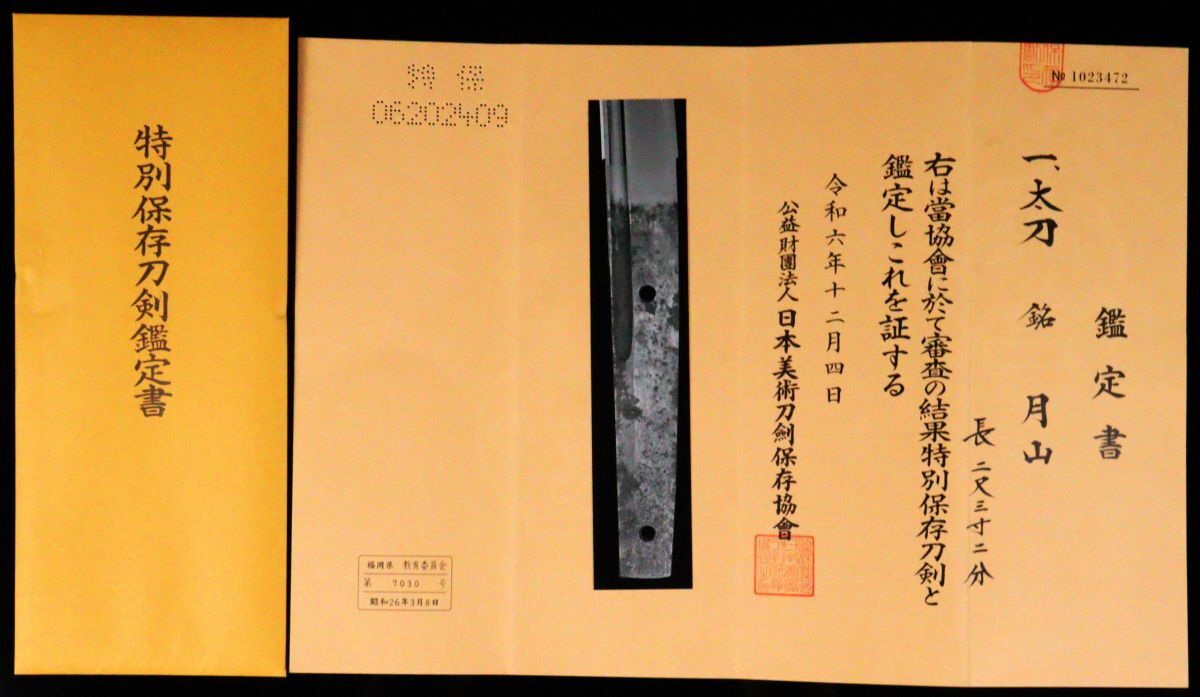 特別保存刀剣鑑定書
№ 1023472
鑑定書
一、太刀 銘 月山
長 二尺三寸二分
右は當協會に於て審査の結果特別保存刀剣と
鑑定しこれを証する
令和六年十二月四日
公益財團法人 日本美術刀劍保存協會
特 保
06202409
福岡県 教育委員会
第 7030 号
昭和26年3月8日